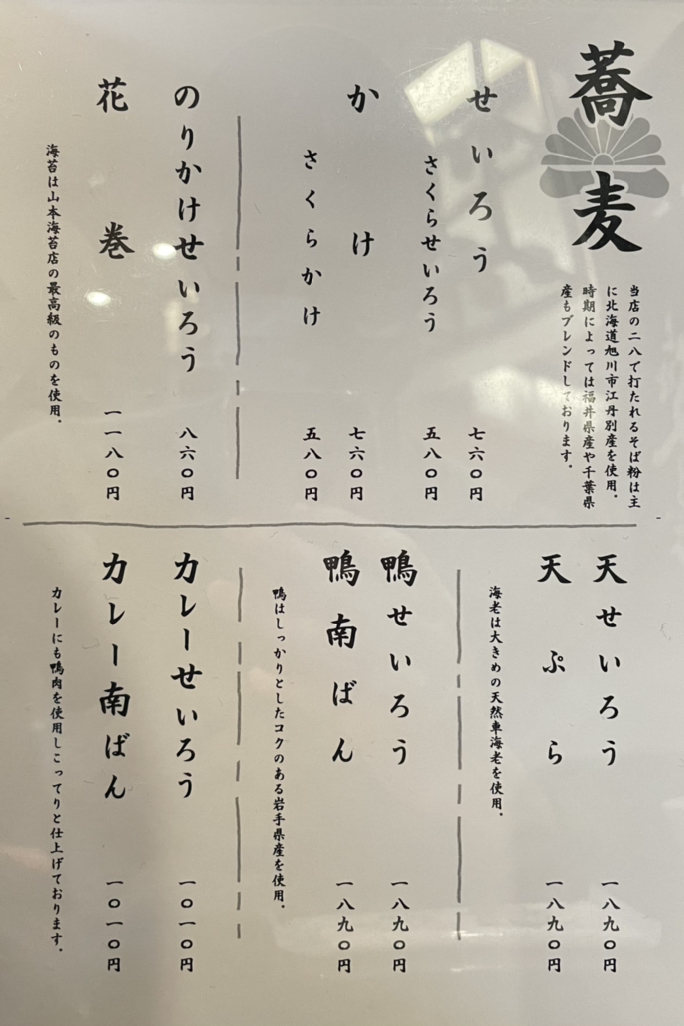 蕎麦
当店の二八で打たれるそば粉は主
に北海道旭川市江丹別産を使用。
時期によっては福井県産や千葉県
産もブレンドしております。
せいろう 七六〇円
さくらせいろう 五八〇円
かけ 七六〇円
さくらかけ 五八〇円
のりかけせいろう 八六〇円
花巻 一一八〇円
海苔は山本海苔店の最高級のものを使用。
天せいろう 一八九〇円
天ぷら 一八九〇円
海老は大きめの天然車海老を使用。
鴨せいろう 一八九〇円
鴨南ばん 一八九〇円
鴨はしっかりとしたコクのある岩手県産を使用。
カレーせいろう 一〇一〇円
カレー南ばん 一〇一〇円
カレーにも鴨肉を使用しこってりと仕上げております。